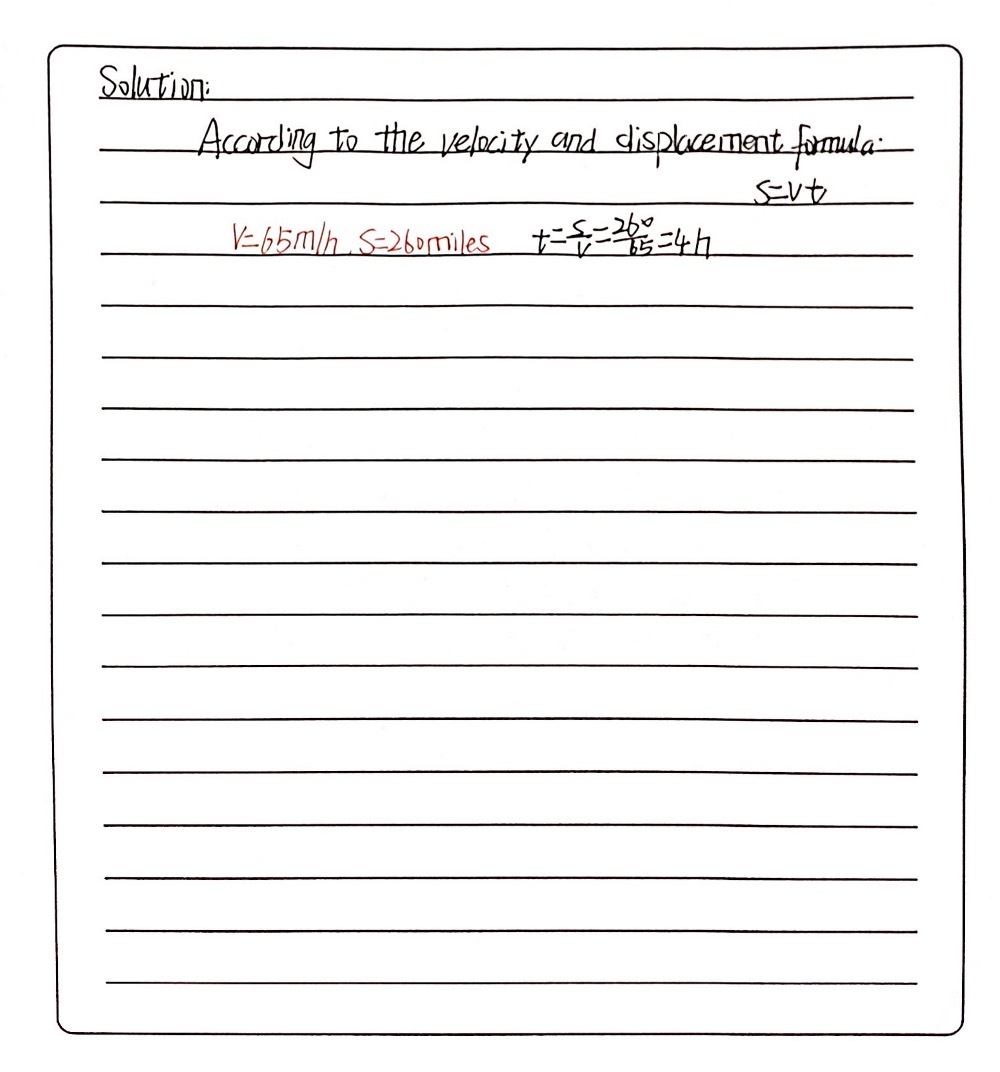 Solution:
According to the velocity and displacement formula:
S=vt
V=65m/h, S=260miles t=S/V=260/65=4h